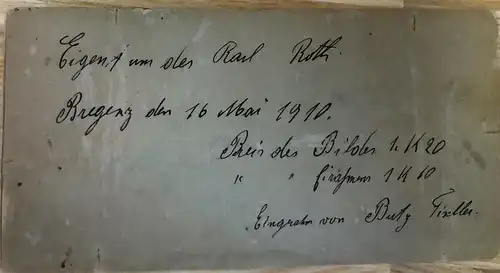 Eigentum des Karl Roth.
Bregenz den 16 Mai 1910.
Preis des Bildes 1. K 20
" " Einrahmens 1 K 60
Eingrahm von Butz Tischler.